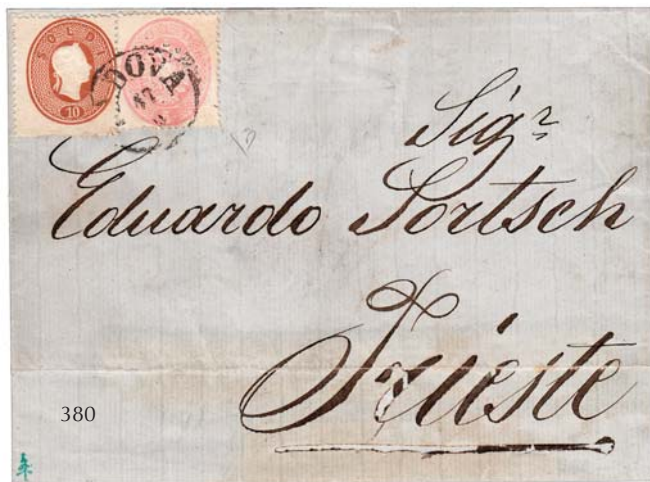 SOLDI
10
DOVA
17
Sigr
Eduardo Sortsch
Trieste
380